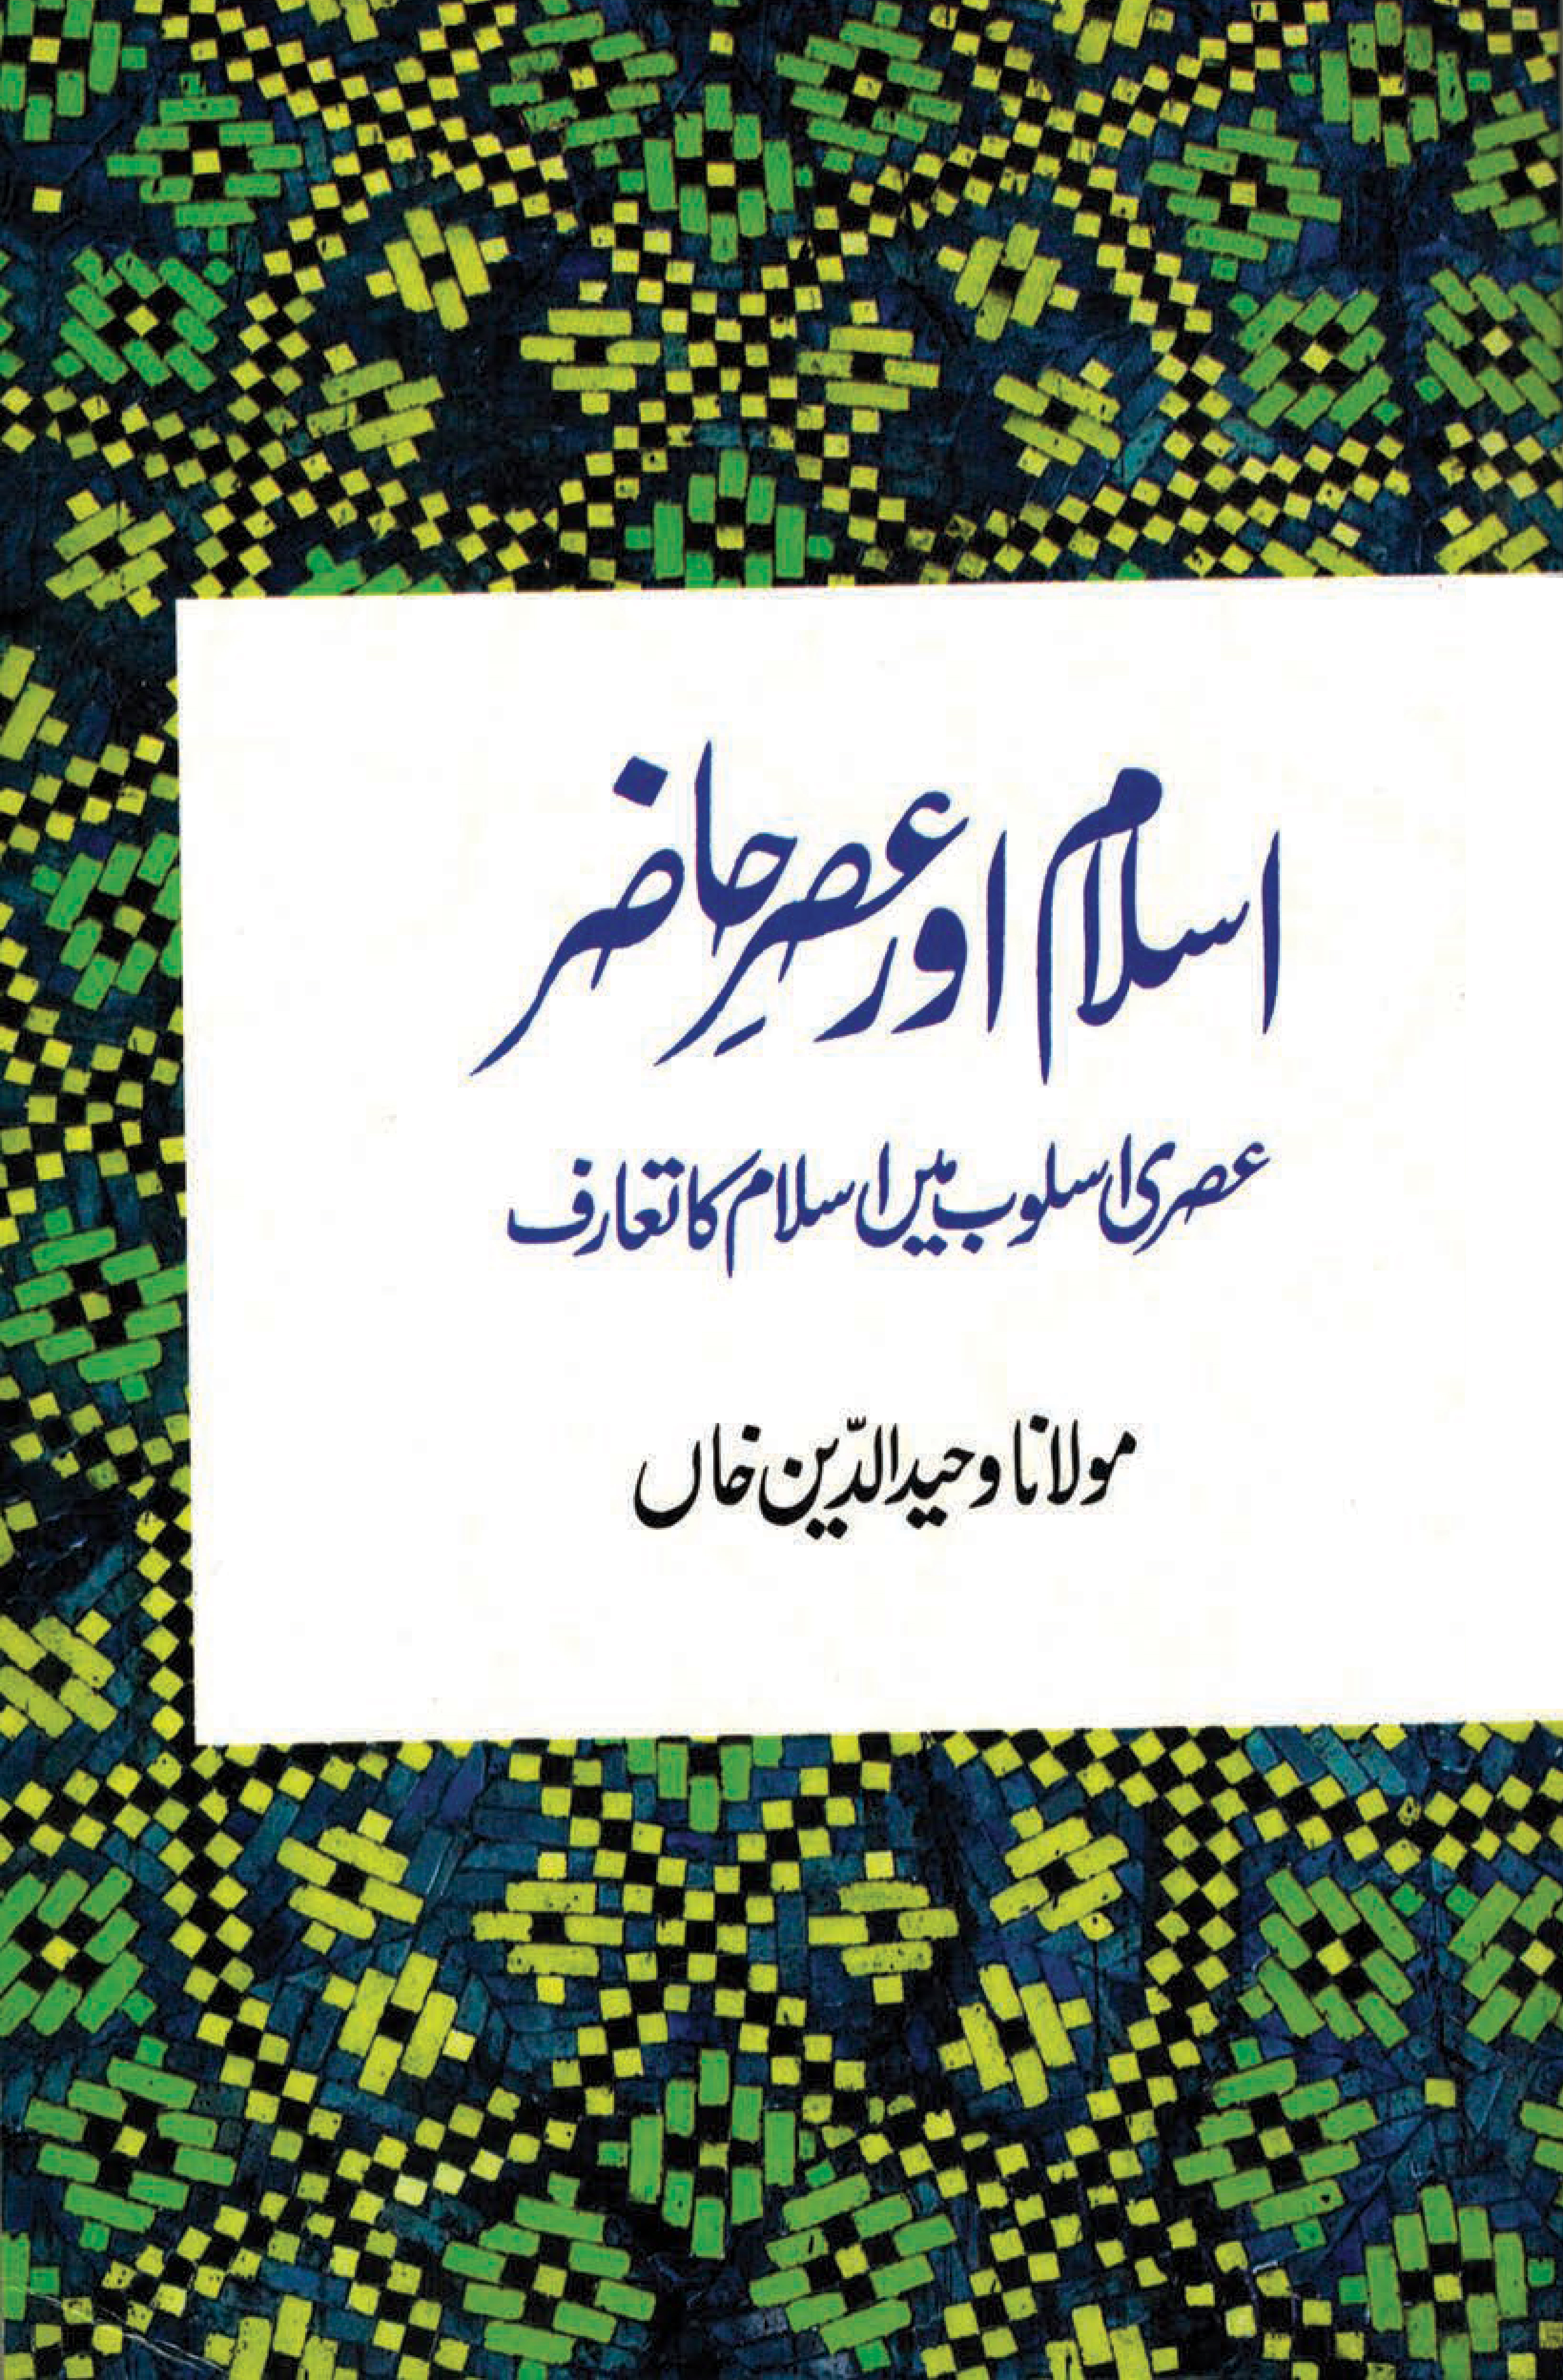 اسلام اور عصرِ حاضر
عصری اسلوب میں اسلام کا تعارف
مولانا وحید الدّین خاں